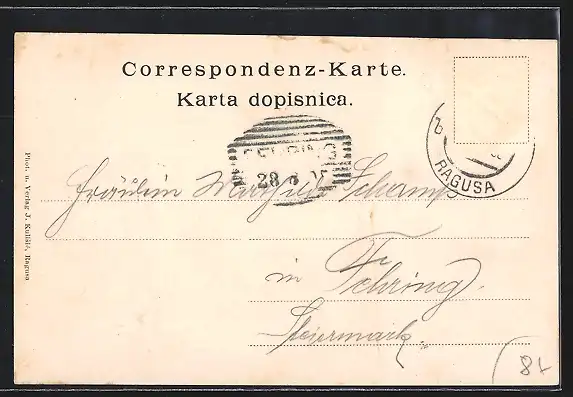 Correspondenz-Karte.
Karta dopisnica.
FEHRING
28
RAGUSA
Fräulein Mathilde Schamp
in Fehring.
Steiermark
Phot. u. Verlag J. Kulišić, Ragusa
81